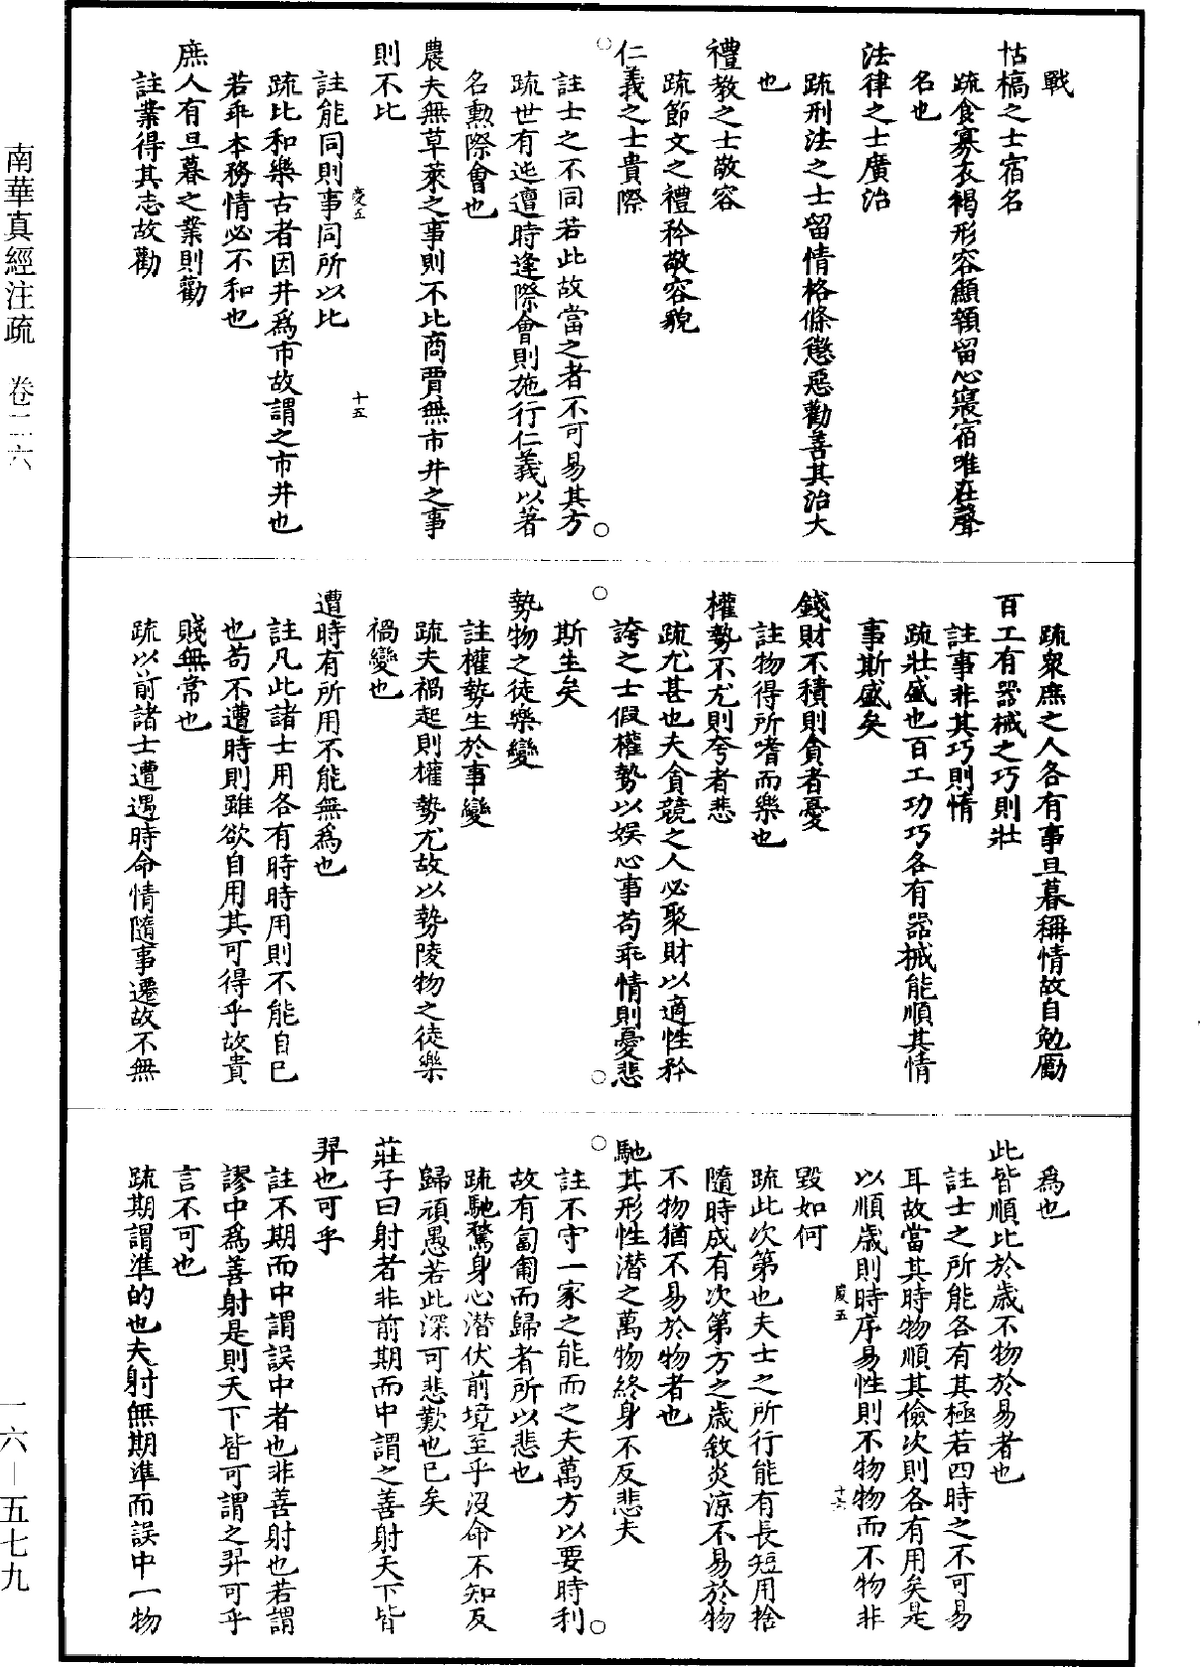 戰
怙槁之士宿名
疏食寡衣褐形容顦顇留心寢宿唯在聲
名也
法律之士廣治
疏刑法之士留情格條懲惡勸善其治大
也
禮教之士敬容
疏節文之禮矜敬容貌
仁義之士貴際
註士之不同若此故當之者不可易其方
疏世有迍邅時逢際會則施行仁義以著
名勲際會也
農夫無草萊之事則不比商賈無市井之事
則不比
慶五 十五
註能同則事同所以比
疏比和樂古者因井為市故謂之市井也
若乖本務情必不和也
庶人有旦暮之業則勸
註業得其志故勸
疏衆庶之人各有事旦暮稱情故自勉勵
百工有器械之巧則壯
註事非其巧則惰
疏壯盛也百工功巧各有器械能順其情
事斯盛矣
錢財不積則貪者憂
註物得所嗜而樂也
權勢不尤則夸者悲
疏尤甚也夫貪競之人必聚財以適性矜
誇之士假權勢以娛心事苟乖情則憂悲
斯生矣
勢物之徒樂變
註權勢生於事變
疏夫禍起則權勢尤故以勢陵物之徒樂
禍變也
遭時有所用不能無為也
註凡此諸士用各有時時用則不能自已
也苟不遭時則雖欲自用其可得乎故貴
賤無常也
疏以前諸士遭遇時命情隨事遷故不無
為也
此皆順比於歲不物於易者也
註士之所能各有其極若四時之不可易
耳故當其時物順其儉次則各有用矣是
以順歲則時序易性則不物物而不物非
慶五 十六
毀如何
疏此次第也夫士之所行能有長短用捨
隨時成有次第方之歲敘炎涼不易於物
不物猶不易於物者也
馳其形性潜之萬物終身不反悲夫
註不守一家之能而之夫萬方以要時利
故有匍匐而歸者所以悲也
疏馳騖身心潜伏前境至乎沒命不知反
歸頑愚若此深可悲歎也已矣
莊子曰射者非前期而中謂之善射天下皆
羿也可乎
註不期而中謂誤中者也非善射也若謂
謬中為善射是則天下皆可謂之羿可乎
言不可也
疏期謂準的也夫射無期準而誤中一物
南華真經注疏 卷二六
一六—五七九